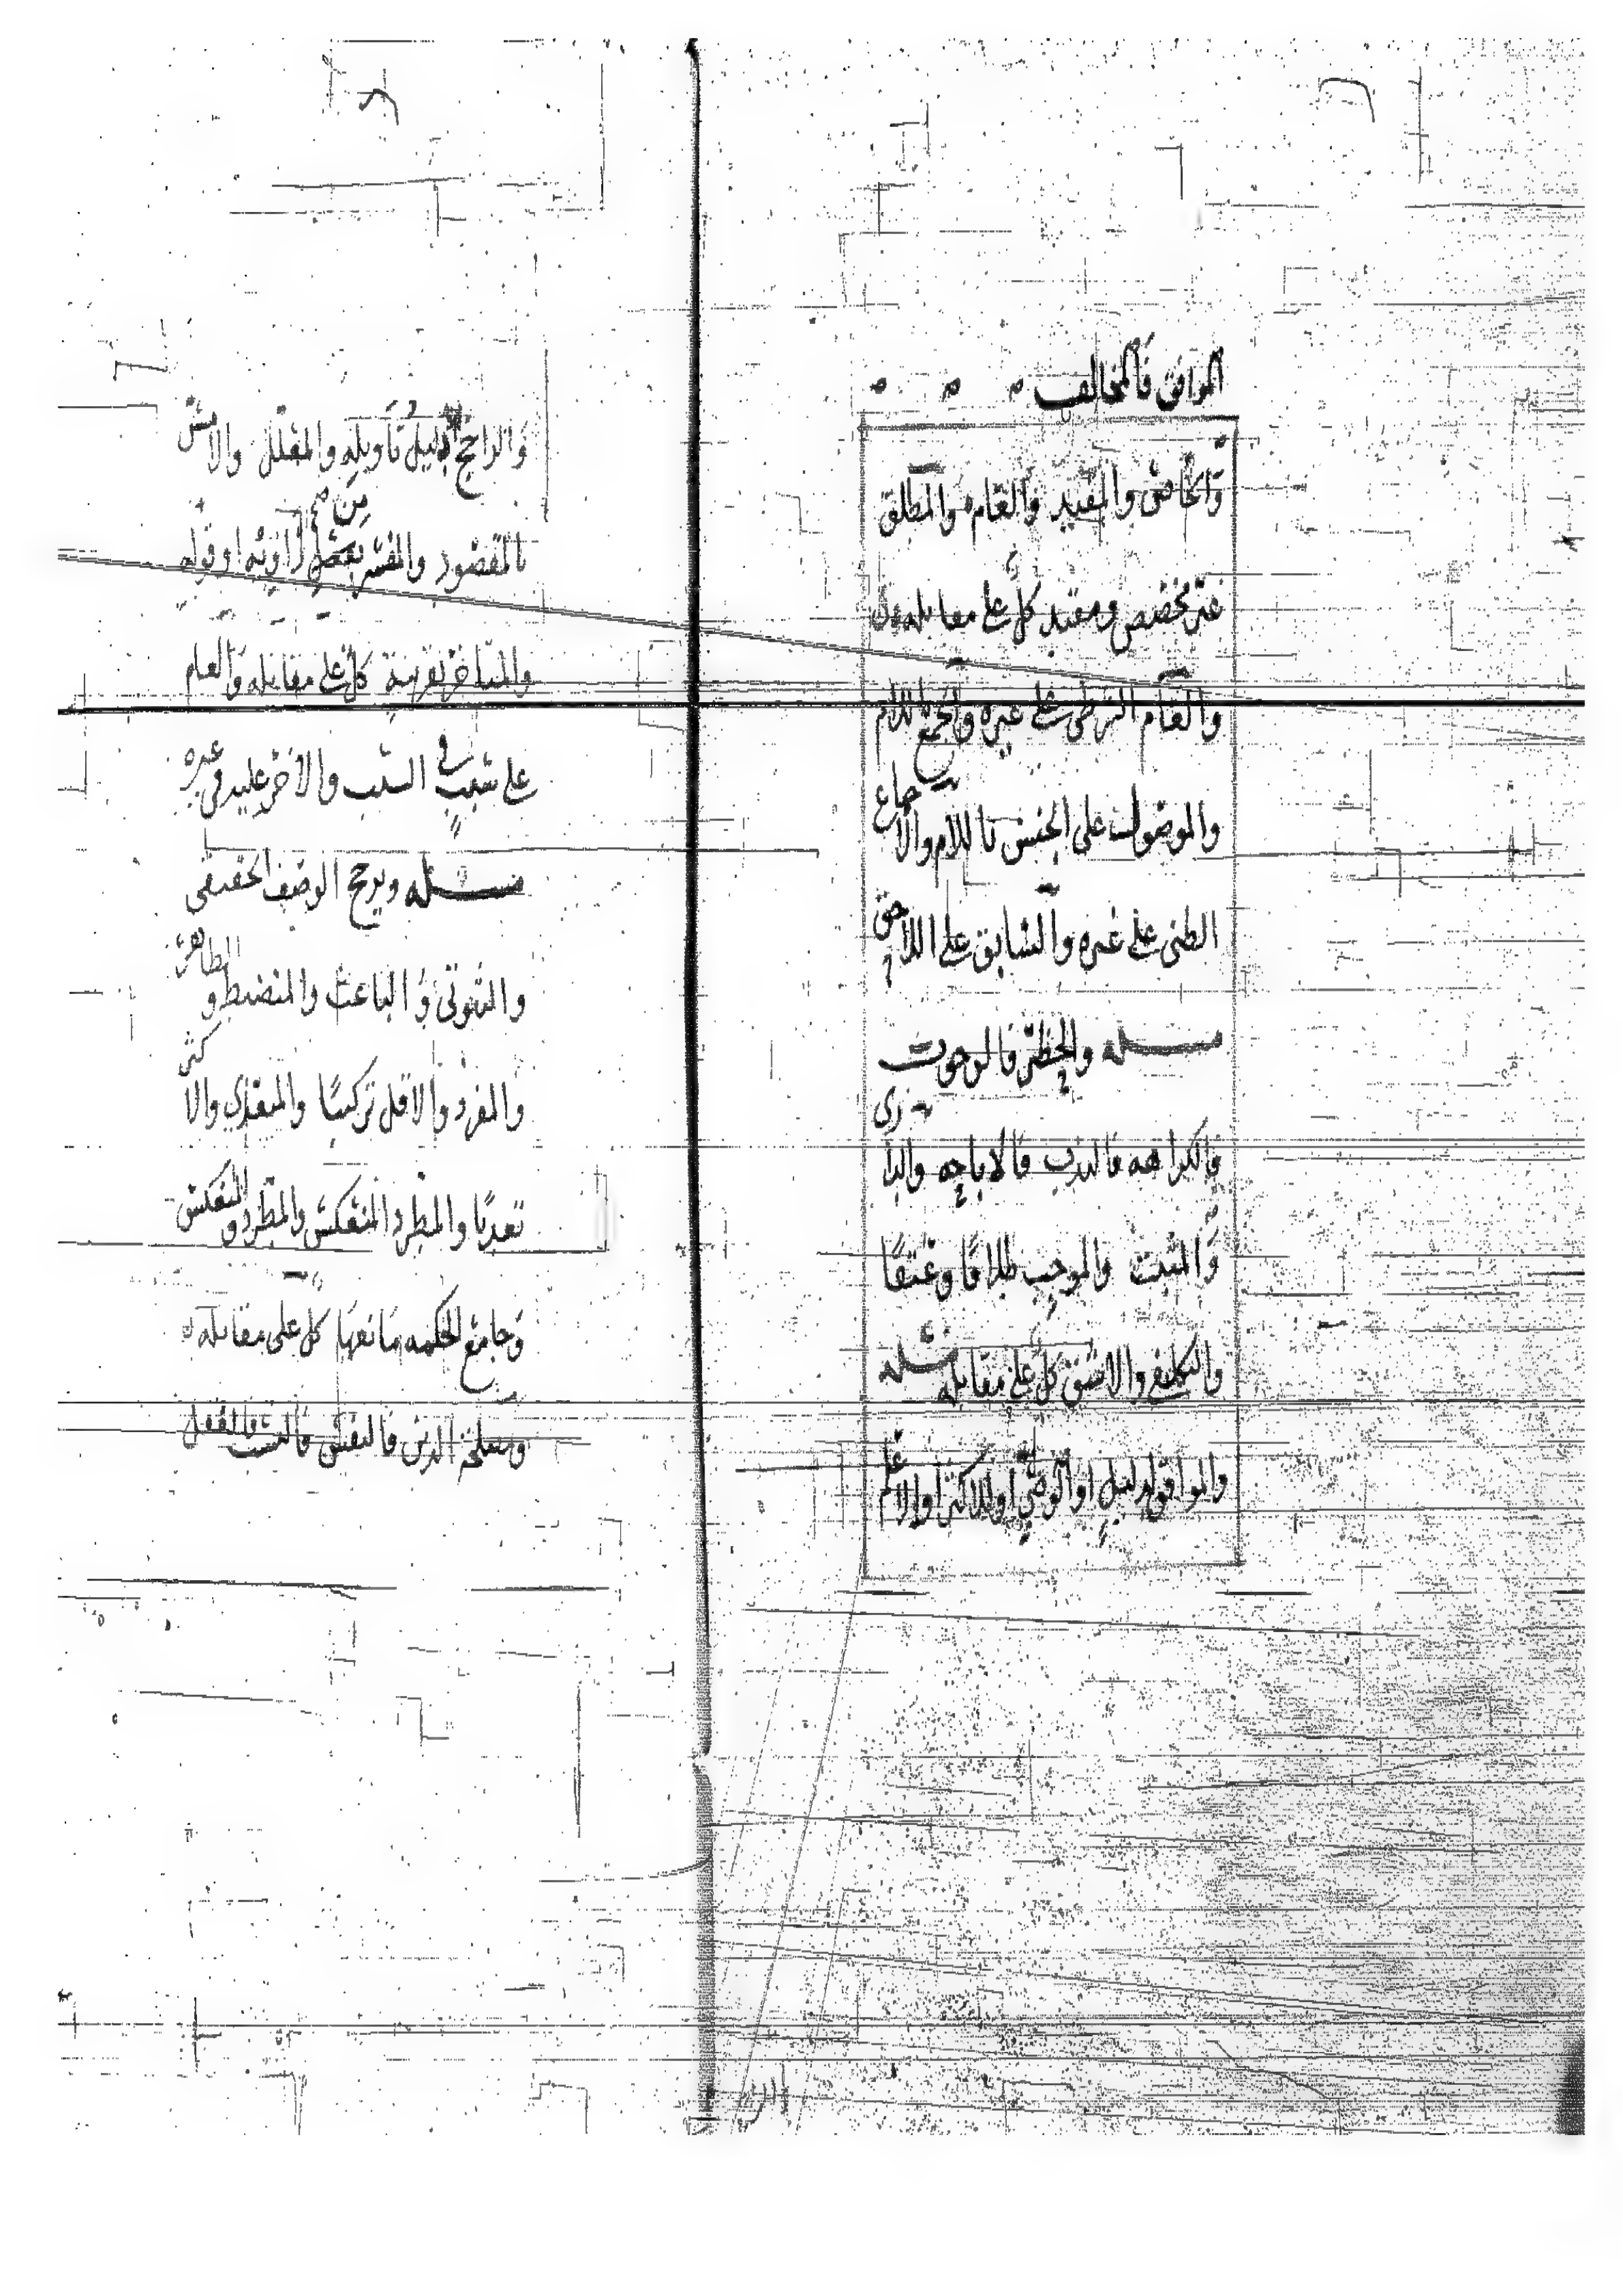 الموافق فالمخالف
والخاص والمقيد والعام والمطلق
غير مخصص ومقيد كل على مقابله
والعام الشرطي على غيره والجمع باللام
والموصول على الجنس باللام والاجماع
الظني على غيره والسابق على اللاحق
مسئله والحظر فالوجوب
فالكراهه فالندب فالاباحه والدارى
والمثبت والموجب طلاقا وعتقا
والتكليفى والاشق كل على مقابله مسئله
والموافق لدليل او لوصى او للاكثر او للاعلم
والراجح دليل تاويله والمعلل والامس
بالمقصود والمفسر بفعل من راويه او قوله
والمتاخر بقرينة كل على مقابله والعام
على سبب في السبب والاخر عليه في غيره
مسئله ويرجح الوصف الحقيقى
والثبوتى والباعث والمنضبط والظاهر
والمفرد والاقل تركيبا والمتعدى والاكثر
تعديا والمطرد المنعكس والمطرد والمنعكس
وجامع الحكمه مانعها كل على مقابله
ومصلحة الدين فالنفس فالنسب فالعقل